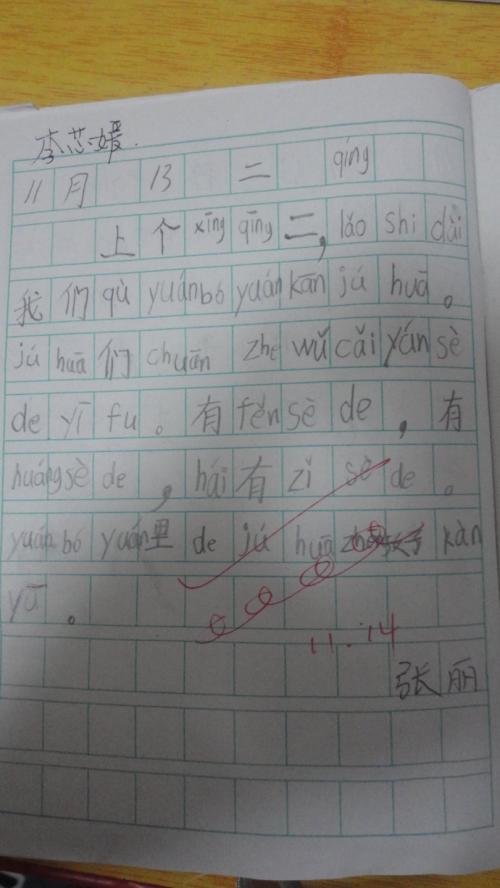 李芯媛.
11月 13 二 qíng
上个xīng qīng二，lǎo shi dài
我们qù yuán bó yuán kān jú huā。
jú huā们chuān zhe wǔ cǎi yán sè
de yī fu。有fěn sè de，有
huáng sè de，hái有zǐ sè de。
yuán bó yuán里de jú huā 好kàn
yā。
11.14
张丽